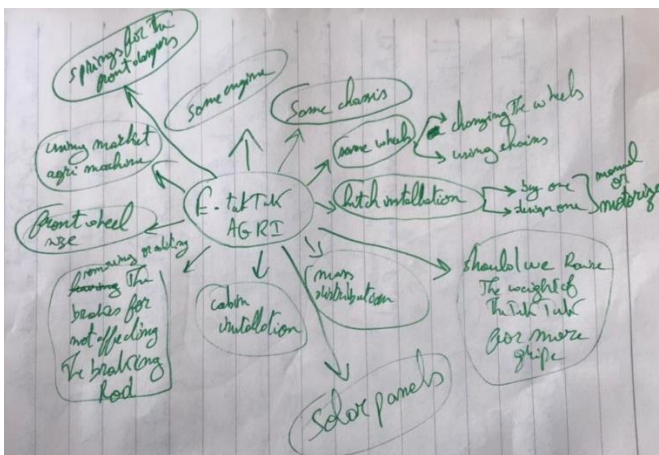 springs for the
front dampers
same engine
same chassis
same wheels
changing the wheels
using chains
using market
agri machine
hitch installation
buy one
design one
manual
or
motorize
E. tukTuk
AGRI
front wheel
size
removing or adding
The
brakes for
not affecting
The braking
Rod
cabin
installation
mass
distribution
should we Raise
The weight of
The Tuk Tuk
for more
gripe
solar panels